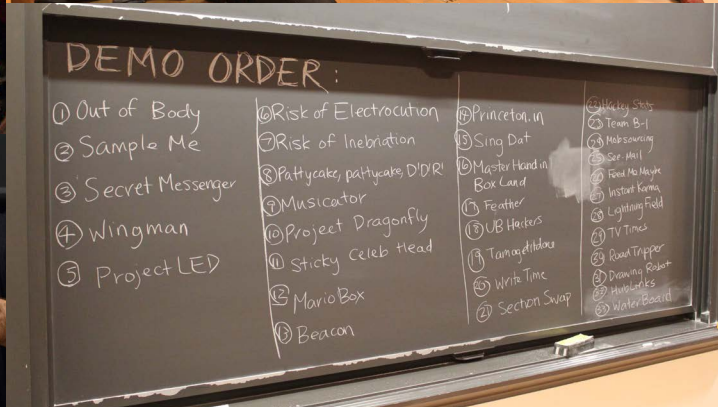 DEMO ORDER:
① Out of Body
② Sample Me
③ Secret Messenger
④ Wingman
⑤ Project LED
⑥ Risk of Electrocution
⑦ Risk of Inebriation
⑧ Pattycake, pattycake, D'D'R!
⑨ Musicator
⑩ Project Dragonfly
⑪ Sticky Celeb Head
⑫ Mario Box
⑬ Beacon
⑭ Princeton.in
⑮ Sing Dat
⑯ Master Hand in
Box Land
⑰ Feather
⑱ UB Hackers
⑲
⑳ Write Time
㉑ Section Swap
㉒ Hackey Stats
㉓ Team B-1
㉔ Mobsourcing
㉕ See-Mail
㉖ Feed Me Maybe
㉗ Instant Karma
㉘ Lightning Field
㉙ TV Times
Road Tripper
Drawing Robot
HubLinks
㉝ Water Board